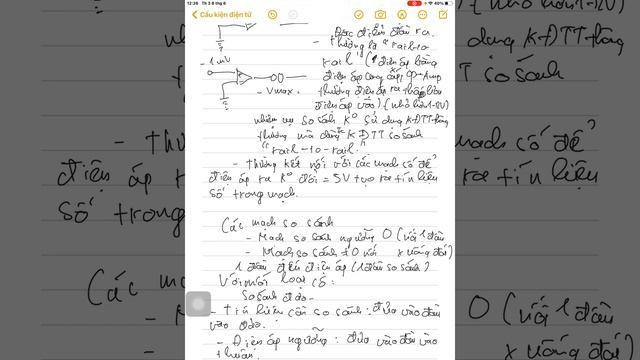 12:36 Th 3 8 thg 6
40%
Cấu kiện điện tử
Đặc điểm đầu ra.
- thường là "rail to
rail" (điện áp bằng
- 1 mV
điện áp cung cấp, Op-Amp
thường điện áp ra thấp hơn
- Vmax.
điện áp vào) (nhỏ hơn 1-2V)
nhiệm vụ so sánh K° sử dụng KĐTT thông
thường mà dùng KĐTT có so sánh
"rail-to-rail."
- thường kết nối với các mạch số để
điện áp ra K° đổi = 5V tạo ra tín hiệu
số trong mạch.
Các mạch so sánh
- Mạch so sánh ngưỡng 0 (với 1 đầu
- Mạch so sánh ≠ 0 nối x uống đất)
1 đầu đến điện áp (1 đầu so sánh)
Với mỗi loại có:
So sánh đảo
- Tín hiệu cần so sánh: đưa vào đầu
vào đảo.
- Điện áp ngưỡng: đưa vào đầu vào
thuận.